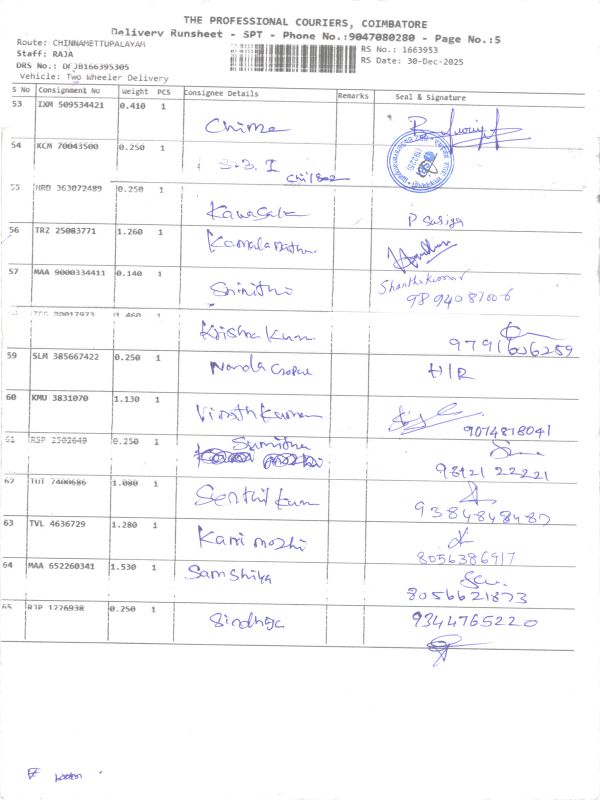 THE PROFESSIONAL COURIERS, COIMBATORE
Delivery Runsheet - SPT - Phone No.:9047080280 - Page No.:5
Route: CHINNAMETTUPALAYAM
Staff: RAJA
RS No.: 1663953
DRS No.: DFJB166395305
RS Date: 30-Dec-2025
Vehicle: Two Wheeler Delivery
S No Consignment No Weight PCS Consignee Details Remarks Seal & Signature
53 IXM 509534421 0.410 1
54 KCM 70043500 0.250 1
S.S. I
55 HRD 363072489 0.250 1
P Sasiga
56 TRZ 25083771 1.260 1
57 MAA 9000334411 0.140 1
Srinithi
Shanthakumar
9894087006
1.460 1
Krishna Kum
9791606259
59 SLM 385667422 0.250 1
Nanda Gopal
H/R
60 KMU 3831070 1.130 1
Vinoth Kumar
9074818041
61 RSP 2502649 0.250 1
Sumitha
98421 22221
62 TUT 7400686 1.080 1
Senthil Kum
9384848487
63 TVL 4636729 1.280 1
Kani mozhi
8056386917
64 MAA 652260341 1.530 1
Samshiya
8056621873
65 RJP 1226938 0.250 1
Sindhya
9344765220